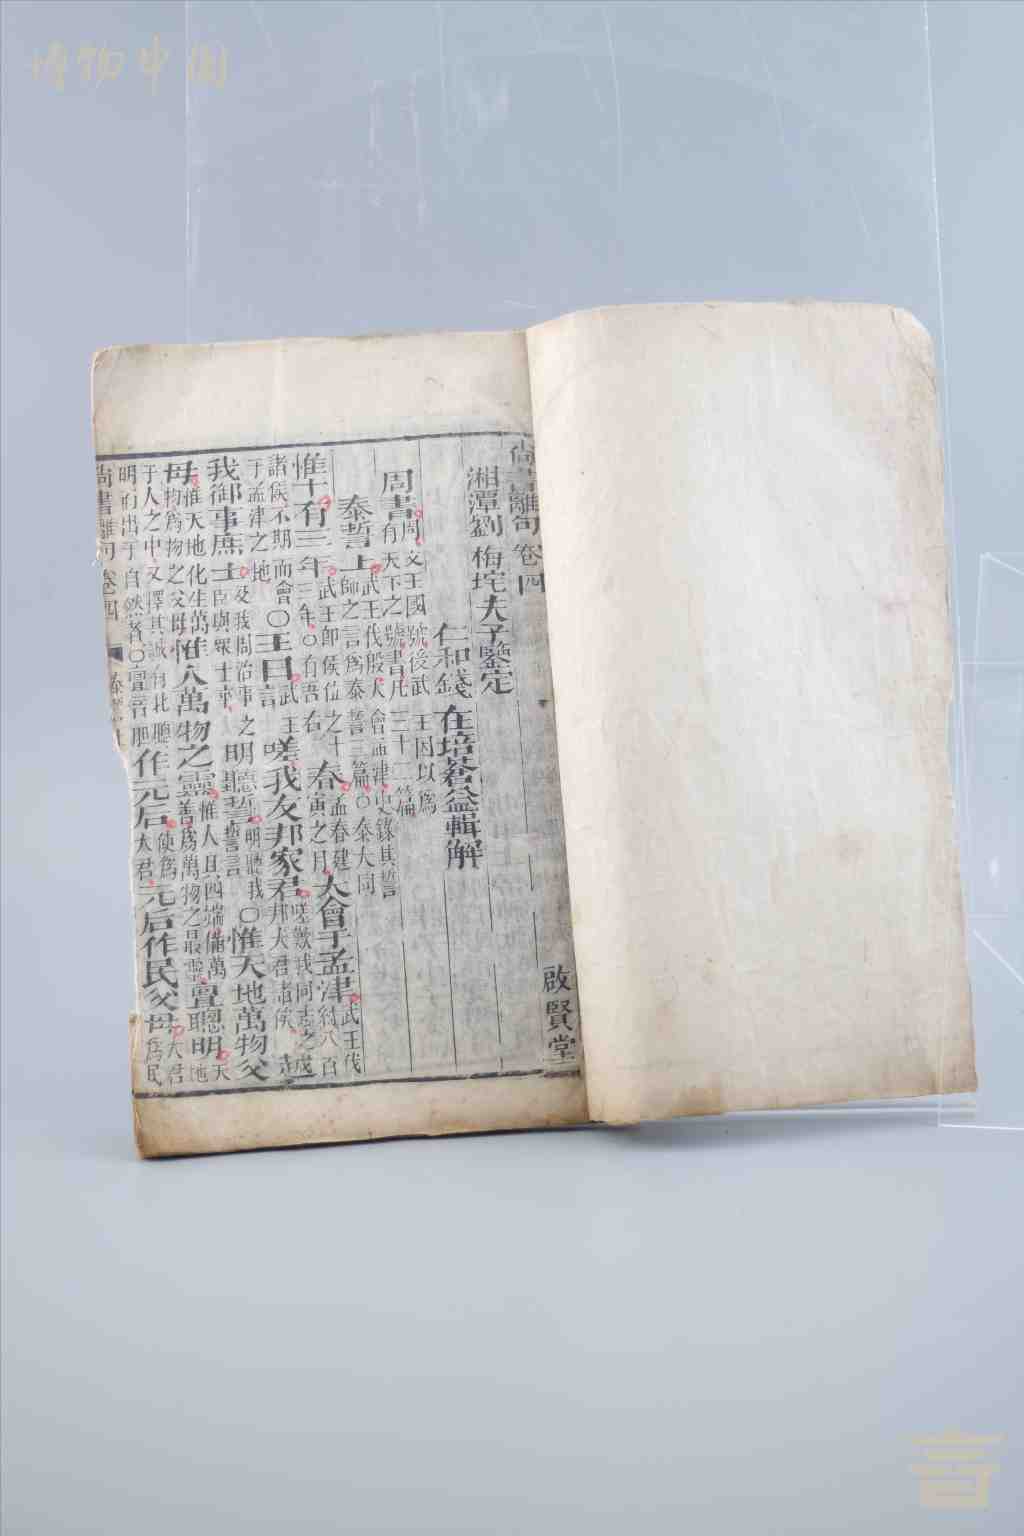 博物中国
尚書離句卷四 啟賢堂
湘潭劉 梅垞夫子鑒定
仁和錢 在培蒼益輯解
周書 周文王國號後武王因以為有天下之號書凡三十二篇
泰誓上 武王伐殷大會孟津史錄其誓師之言為泰誓三篇○泰大同
惟十有三年 武王即侯位之十三年○有吾右 春 孟春建寅之月 大會于孟津 武王伐紂八百
諸侯不期而會于孟津之地 ○王曰 武王 嗟我友邦家君 嗟歎我同志之邦大君諸侯 越
我御事庶士 及我周治事之臣與眾士事 明聽誓 明聽我誓言 ○惟天地萬物父
母 惟天地化生萬物為物之父母 惟人萬物之靈 惟人且四端備萬善為萬物之最靈 亶聰明 天地
于人之中又擇其誠有此聰明而出于自然者○亶音胆 作元后 使為大君 元后作民父母 大君為民
尚書離句 卷四 泰誓上
言